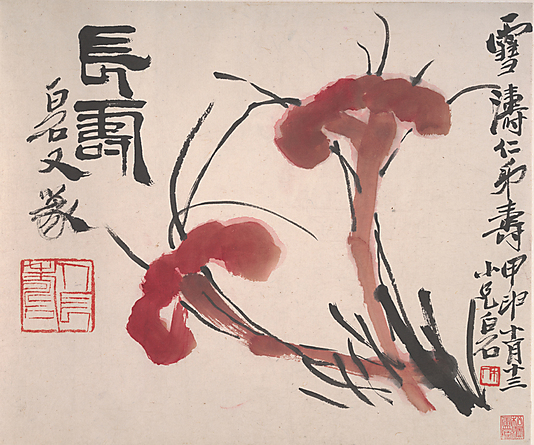 雪濤仁弟壽甲申十月十三
小兄白石
長壽
白石又篆